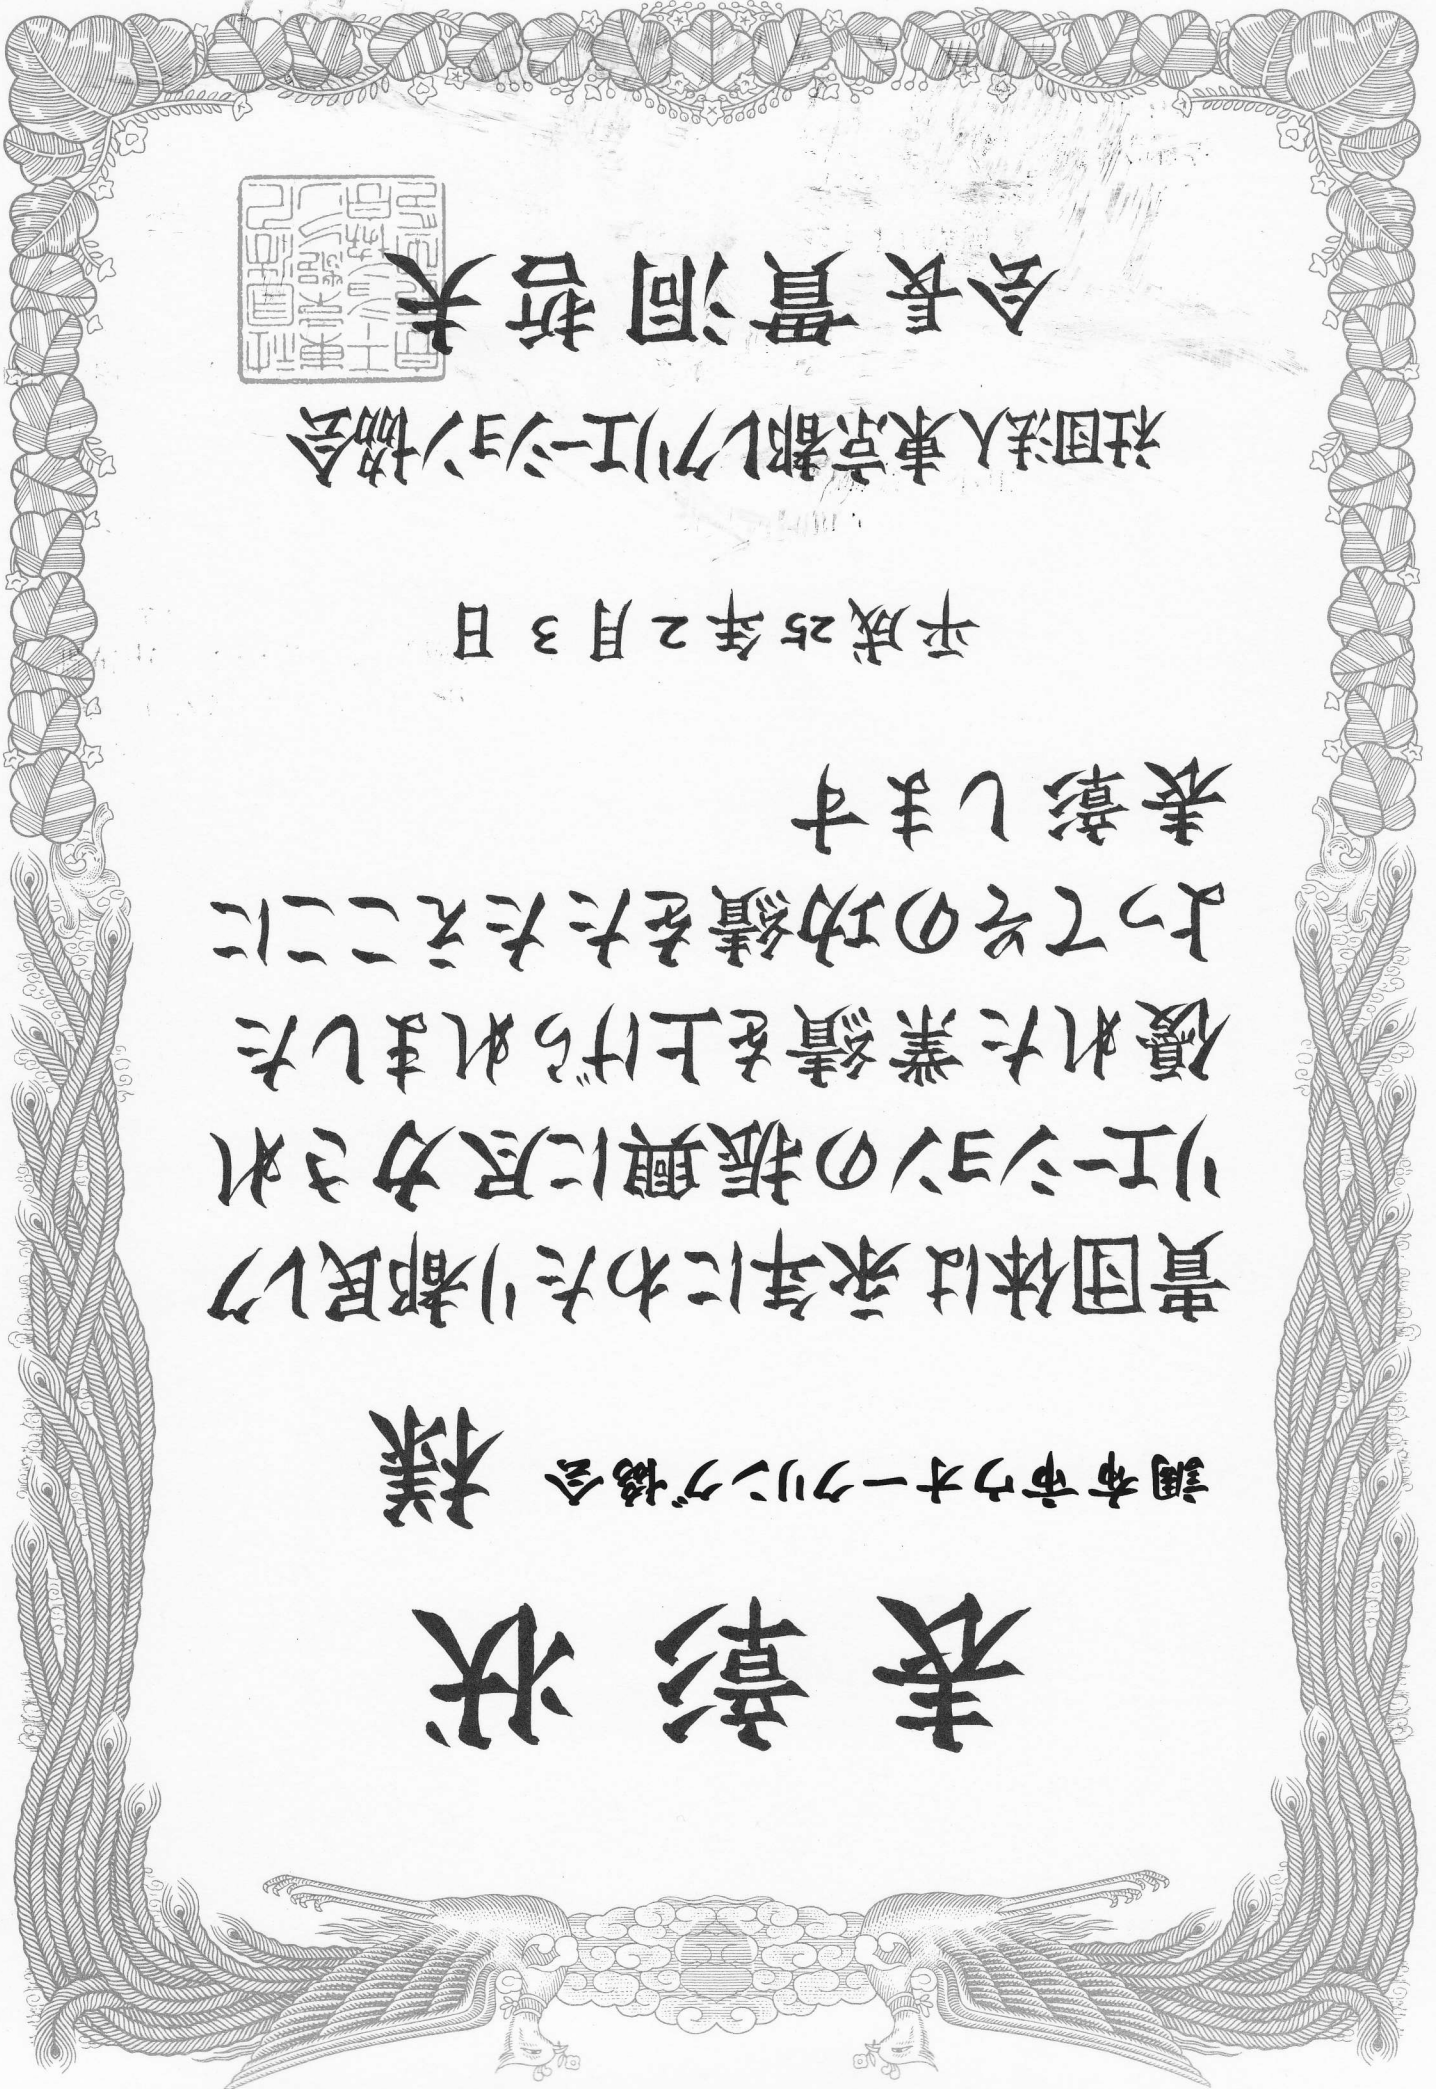 表彰状
調布市ウオークリング協会 様
貴団体は永年にわたり都民レク
リエーションの振興に尽力され
優れた業績を上げられました
よってその功績をたたえここに
表彰します
平成25年2月3日
社団法人東京都レクリエーション協会
会長 貫洞哲夫